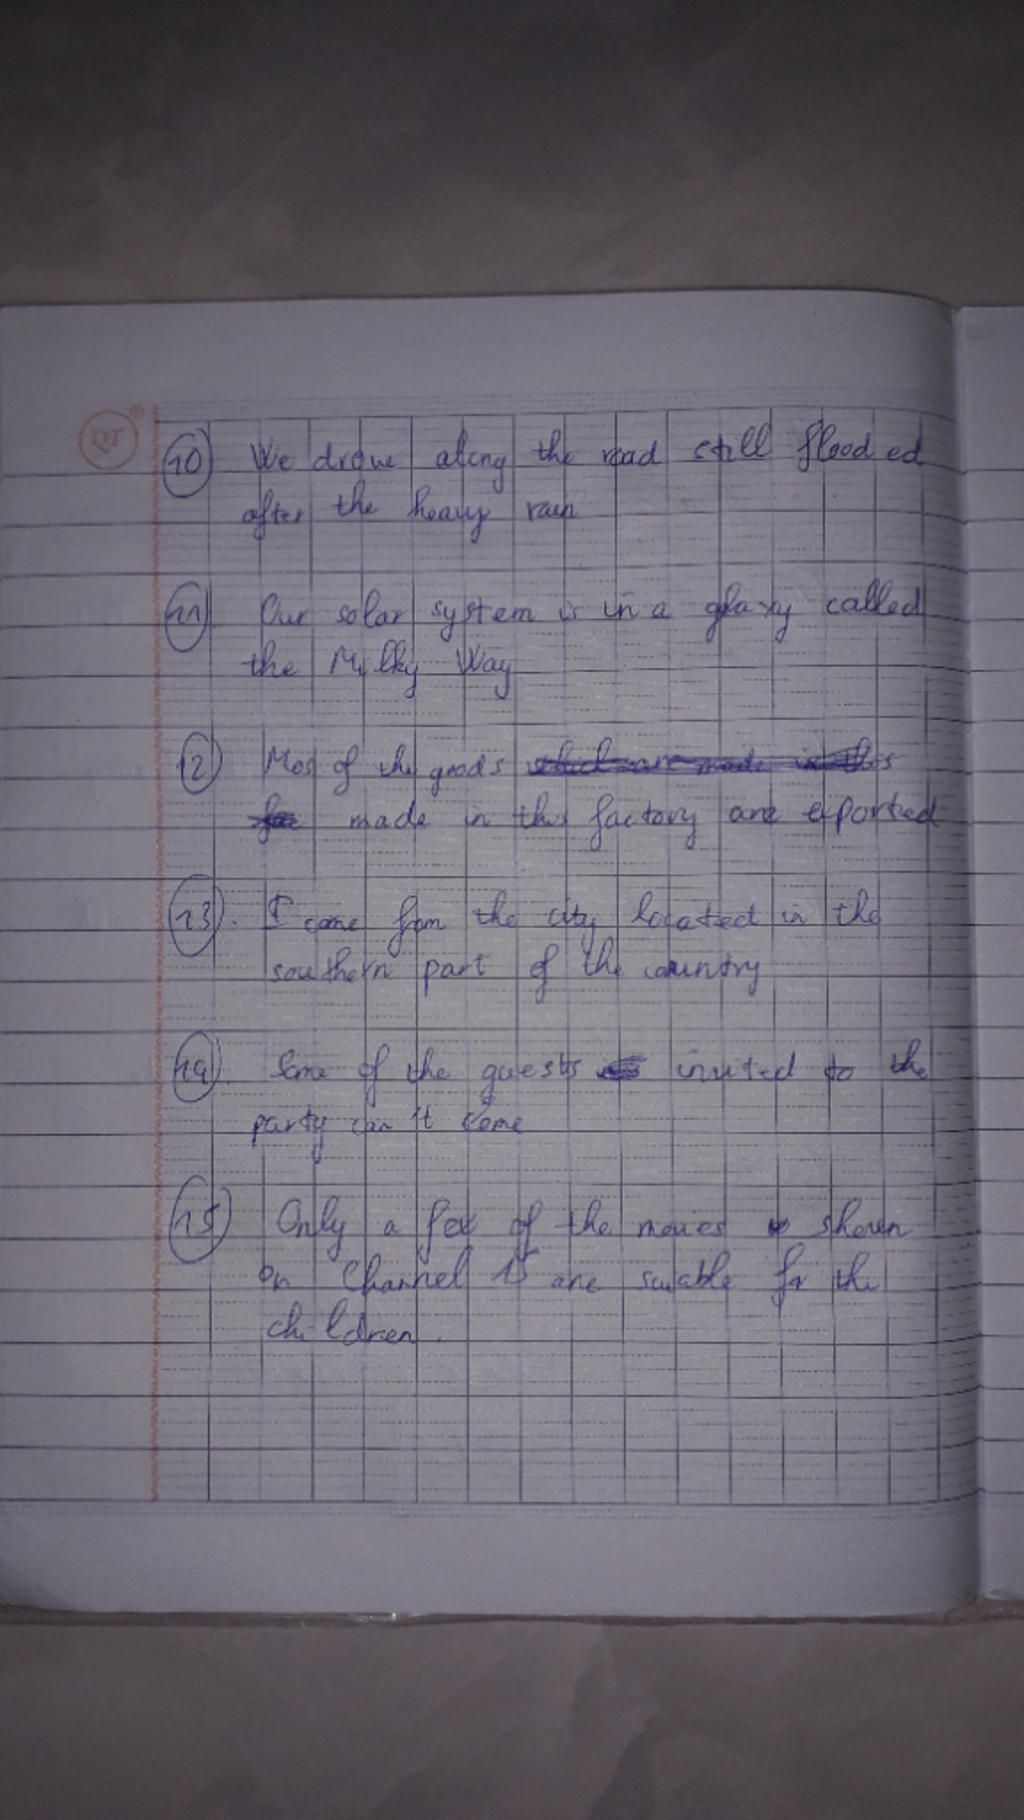 QT
10 We drove along the road still flooded
after the heavy rain
11 Our solar system is in a glaxy called
the Milky Way
12 Mos of the goods which are made in this
made in this factory are exported
13. I come from the city located in the
southern part of the country
14 Some of the guests invited to the
party can't come
15 Only a few of the movies shown
on Channel 15 are suitable for the
children.